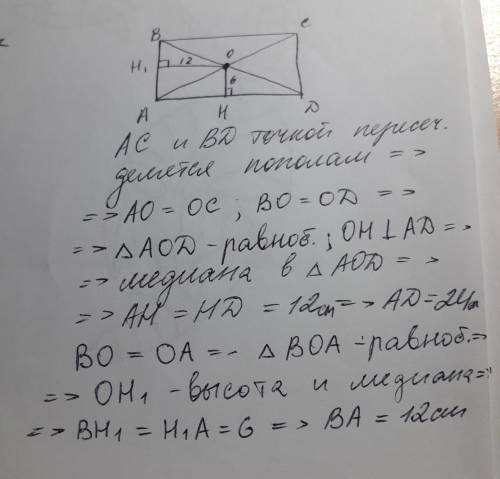 B
C
H₁
12
O
6
A
H
D
AC и BD точкой пересеч.
делятся пополам =>
=> AO = OC ; BO = OD =>
=> △ AOD - равноб. ; OH ⊥ AD =>
=> медиана в △ AOD = >
=> AH = HD = 12см => AD = 24см
BO = OA =- △ BOA - равноб. =>
=> OH₁ - высота и медиана =>
=> BH₁ = H₁A = 6 => BA = 12 см